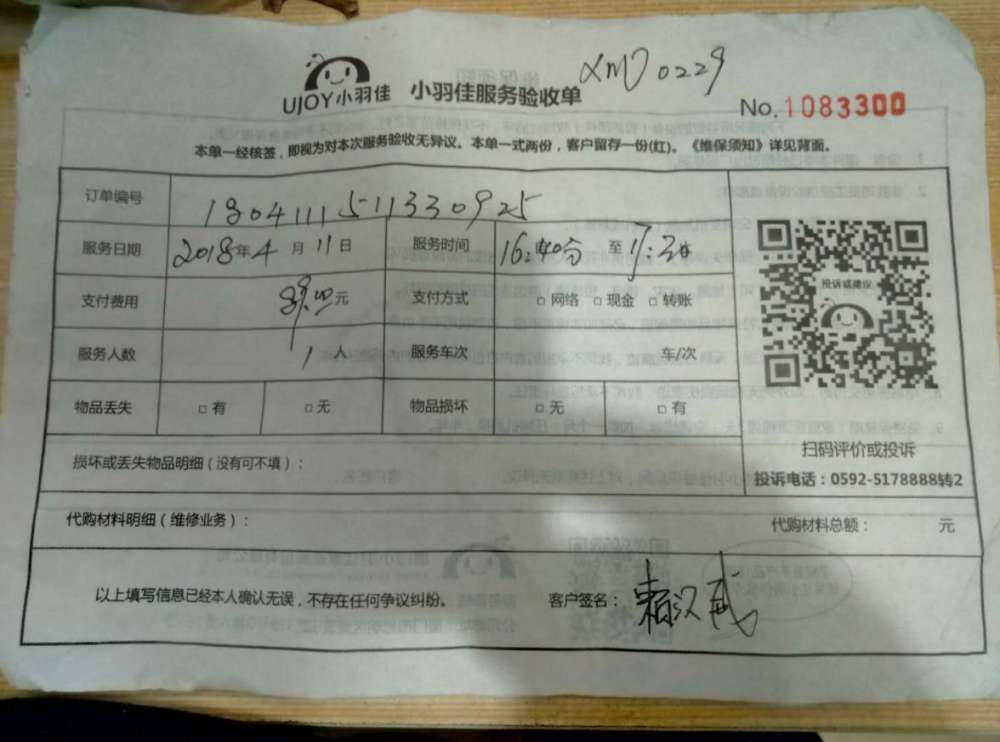 XMD0229
UJOY小羽佳 小羽佳服务验收单
No. 1083300
本单一经核签，即视为对本次服务验收无异议。本单一式两份，客户留存一份(红)。《维保须知》详见背面。
订单编号 180411151133 0925
服务日期 2018年4月11日 服务时间 16:40分 至 17:30
投诉或建议
支付费用 元 支付方式 □ 网络 □ 现金 □ 转账
服务人数 1 人 服务车次 车/次
物品丢失 □ 有 □ 无 物品损坏 □ 无 □ 有
扫码评价或投诉
损坏或丢失物品明细（没有可不填）：
投诉电话：0592-5178888转2
代购材料明细（维修业务）： 代购材料总额： 元
以上填写信息已经本人确认无误，不存在任何争议纠纷。 客户签名：